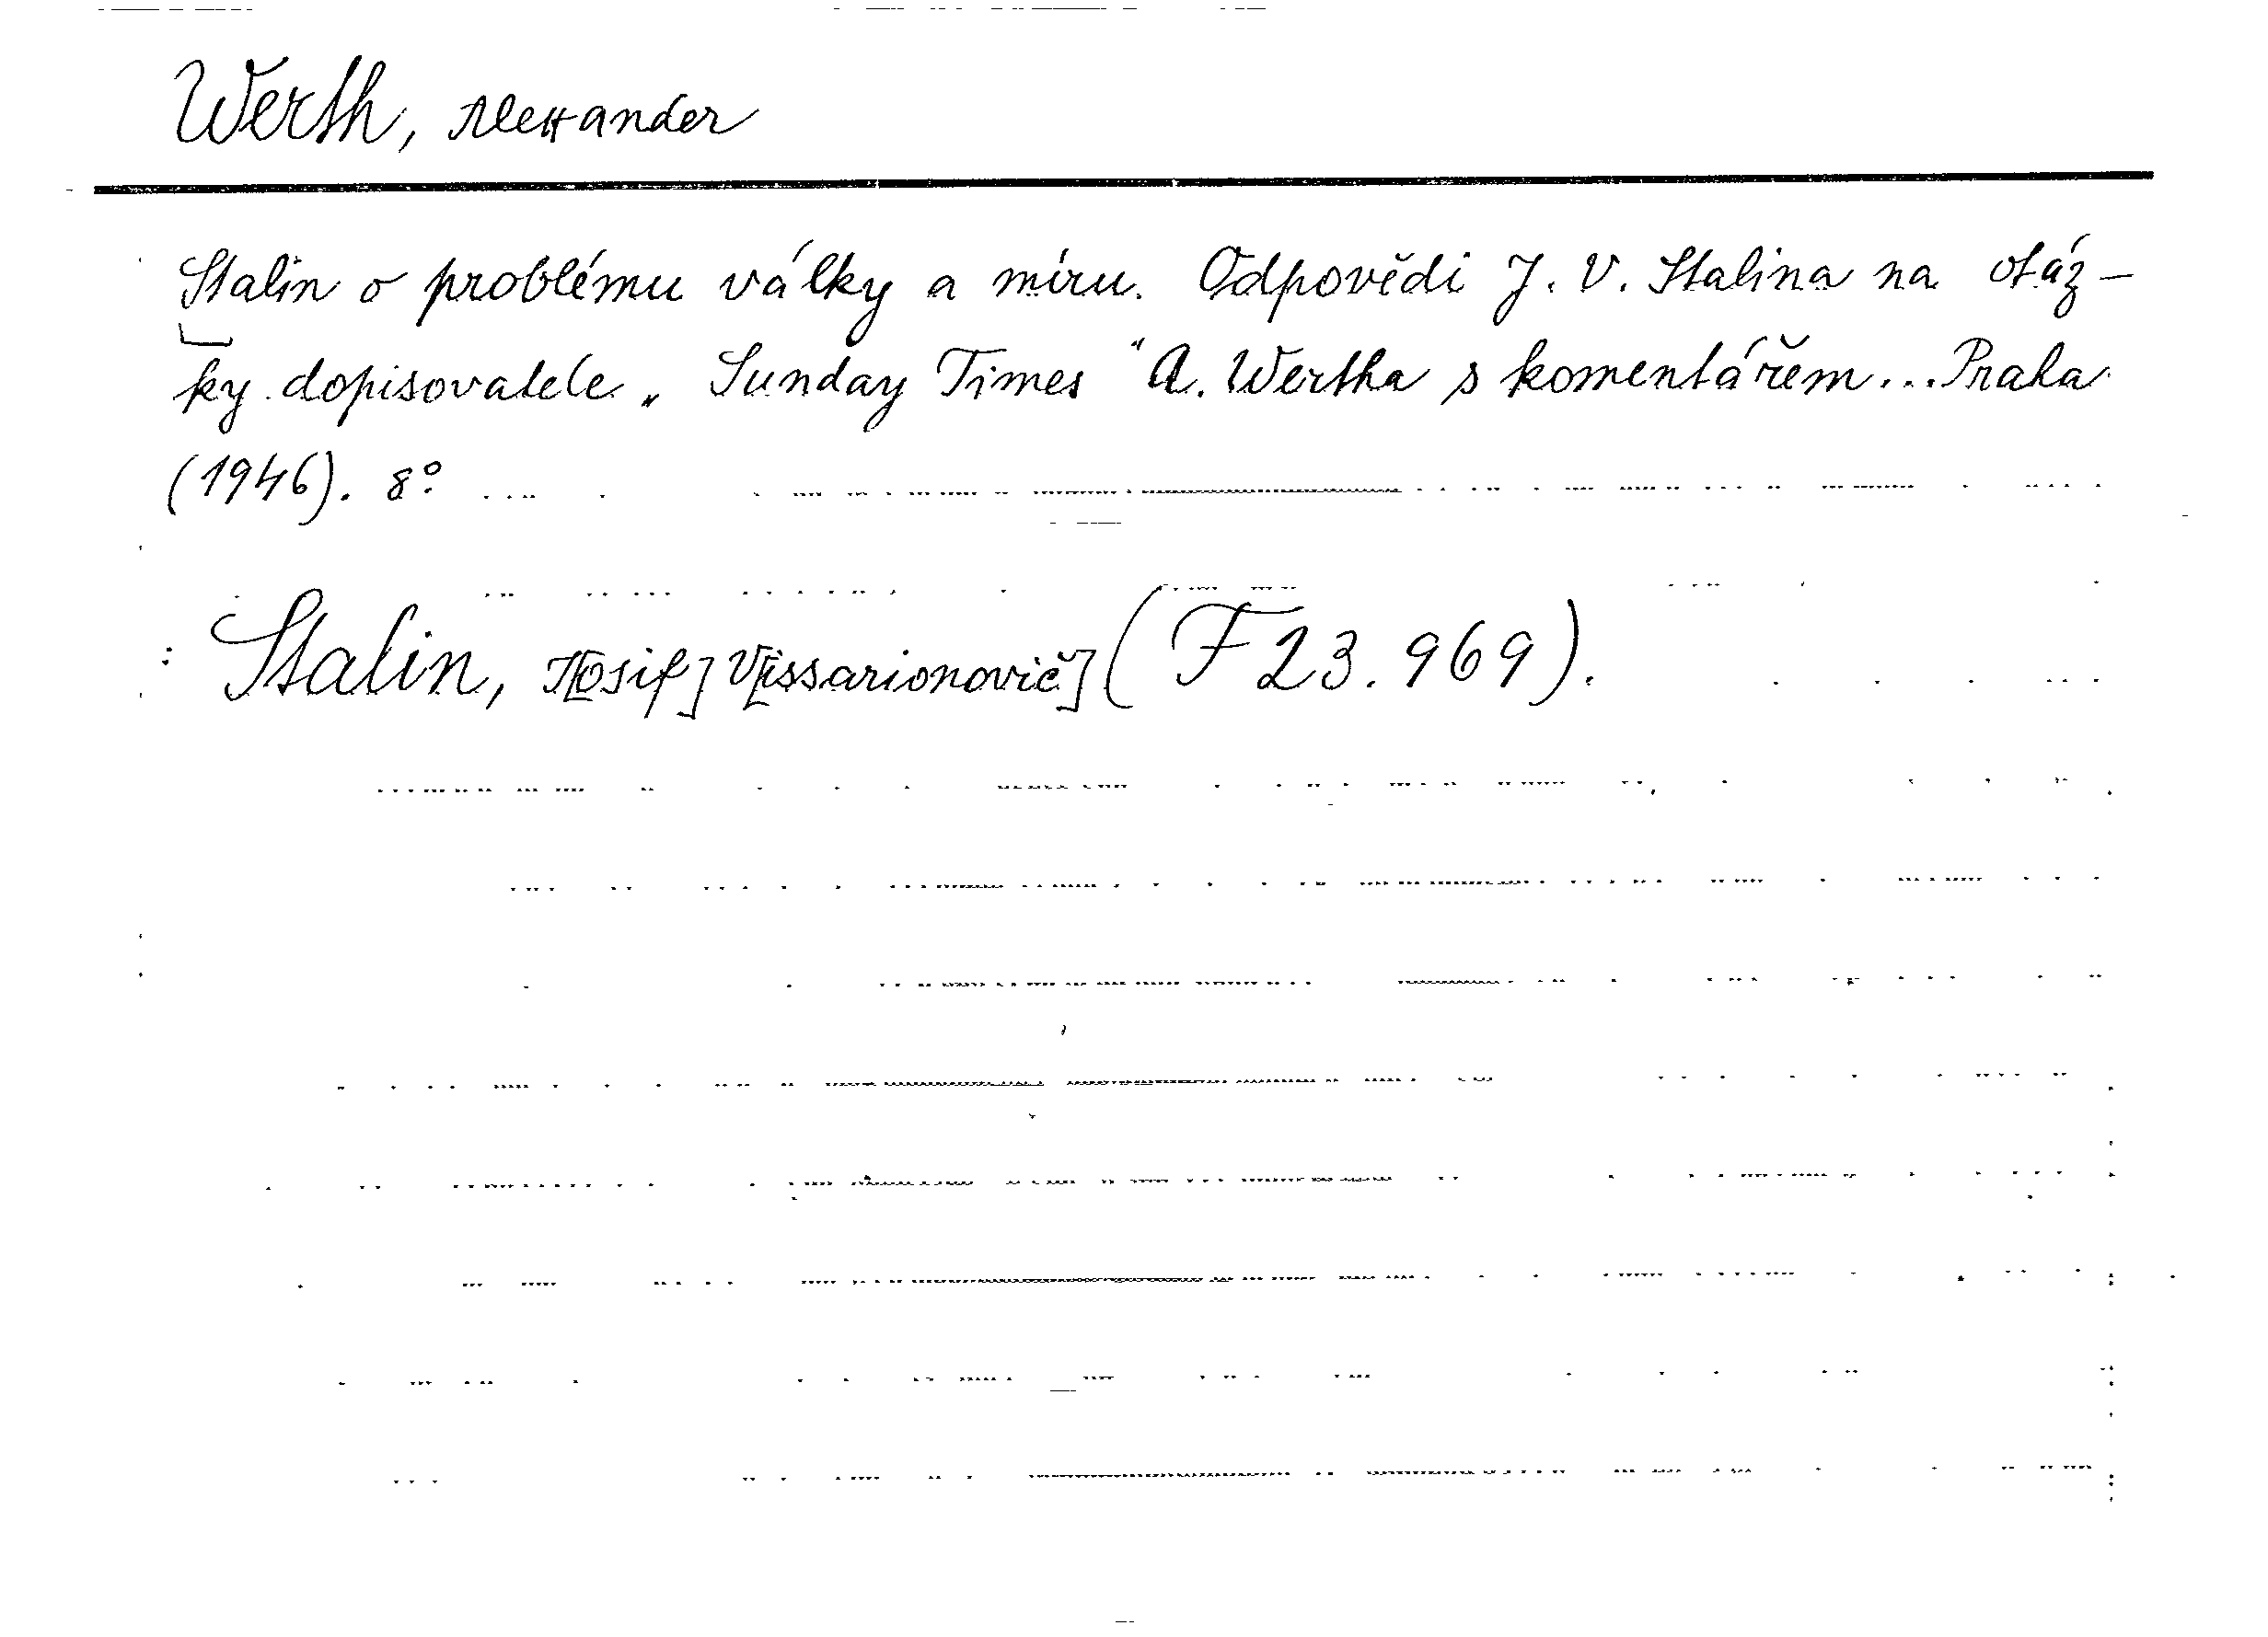 Werth, Alexander
Stalin o problému války a míru. Odpovědi J. V. Stalina na otáz-
ky dopisovatele „Sunday Times“ A. Wertha s komentářem... Praha
(1946). 8°
Stalin, I[osif] V[issarionovič] (F 23.969).